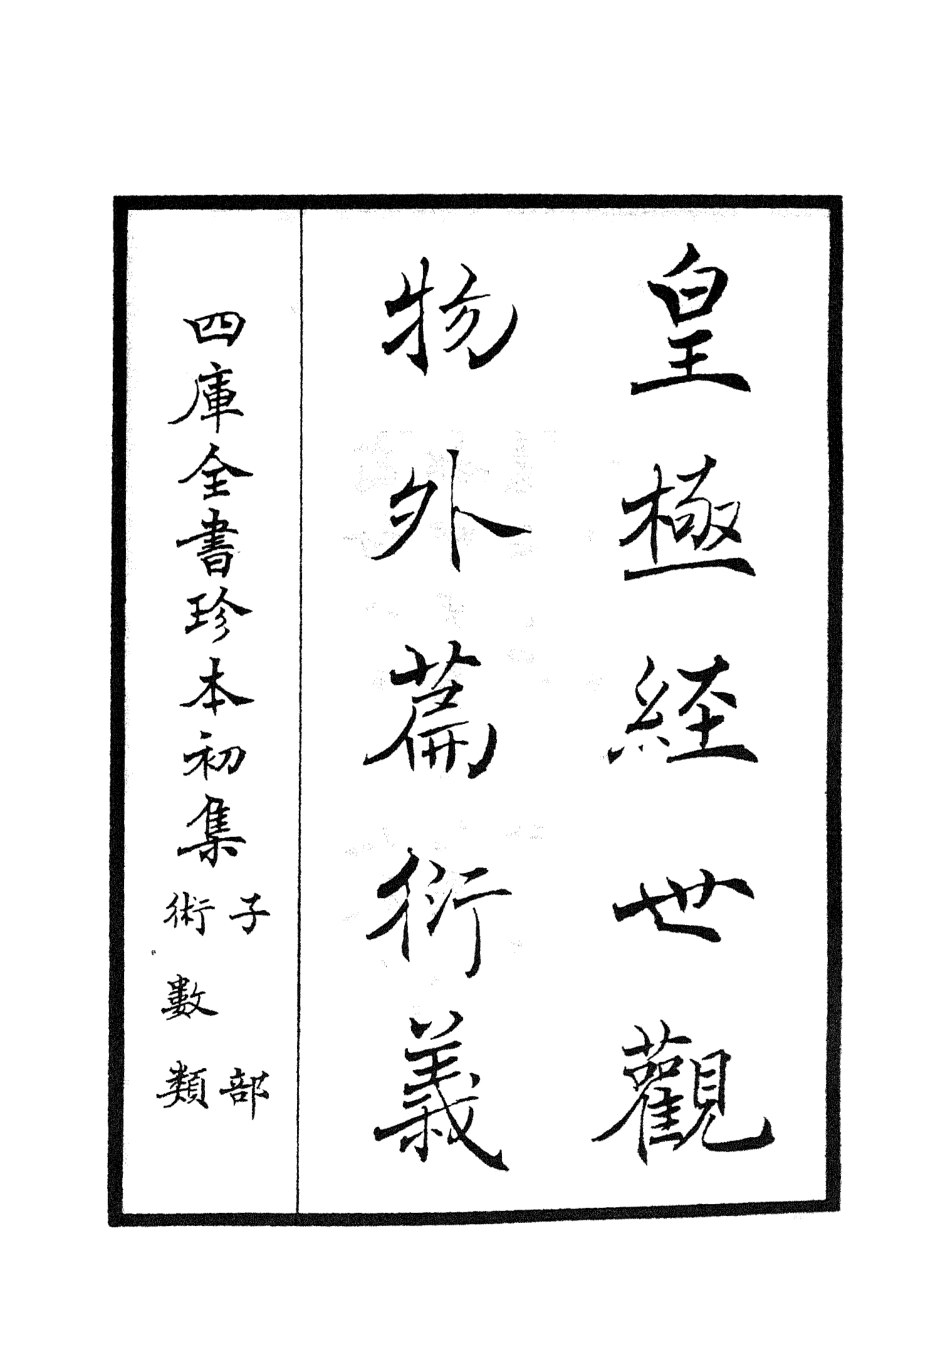 皇極經世觀
物外篇衍義
四庫全書珍本初集
子部
術數類